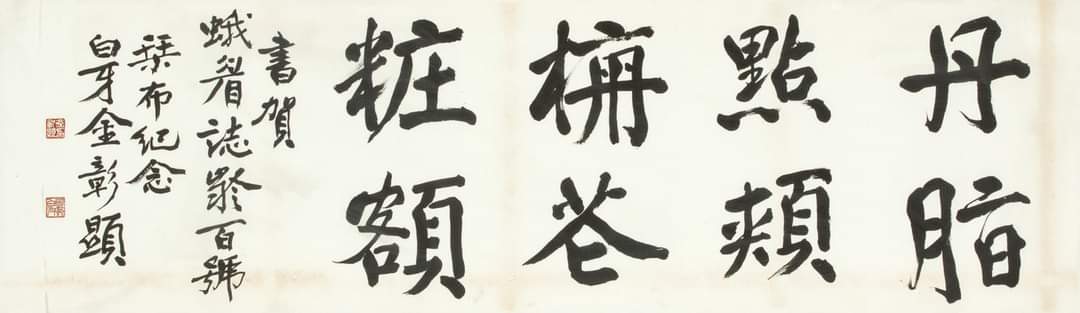 丹脂
點頰
梅花
粧額
書賀
蛾眉誌齡百號
栞布紀念
白牙金彰顯